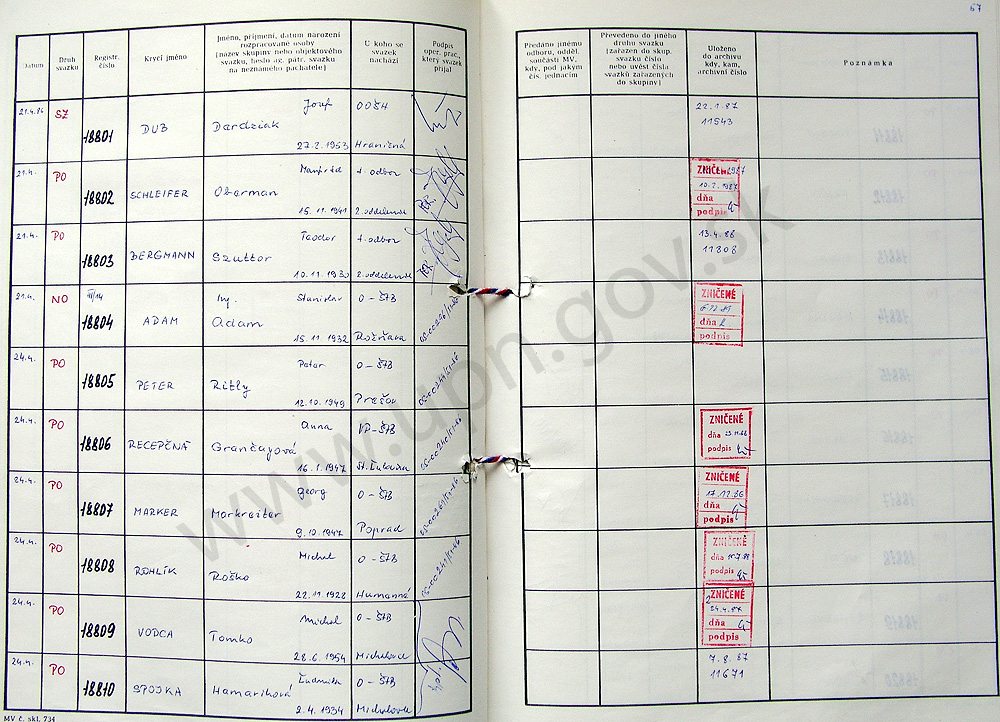 67
Datum
Druh svazku
Registr. číslo
Krycí jméno
Jméno, příjmení, datum narození
rozpracované osoby
(název skupiny nebo objektového
svazku, heslo ag. pátr. svazku
na neznámého pachatele)
U koho se
svazek
nachází
Podpis
oper. prac.,
který svazek
přijal
Předáno jinému
odboru, odděl.
součásti MV,
kdy, pod jakým
čís. jednacím
Převedeno do jiného
druhu svazku
(zařazen do skup.
svazku číslo
nebo uvést čísla
svazků zařazených
do skupiny)
Uloženo
do archivu
kdy, kam,
archivní číslo
Poznámka
21.4.86 SZ 18801 DUB Dardziak Jozef 27.2.1953 OOSH Hraničná 22.1.87 11543
21.4. PO 18802 SCHLEIFER Oberman Manfréd 15.11.1941 1. odbor 2. oddelenie ZNIČENÉ 10.2.1987 dňa podpis
21.4. PO 18803 BERGMANN Szuttor Teodor 10.11.1930 1. odbor 2. oddelenie 13.4.88 11808
21.4. NO 18804 ADAM Ing. Stanislav Adam 15.11.1932 O-ŠTB Rožňava ZNIČENÉ dňa podpis
24.4. PO 18805 PETER Peter 12.10.1949 O-ŠTB Prešov
24.4. PO 18806 RECEPČNÁ Grančayová Anna 16.1.1947 O-ŠTB St. Ľubovňa ZNIČENÉ dňa podpis
24.4. PO 18807 MARKER Markreiter Georg 9.10.1947 O-ŠTB Poprad ZNIČENÉ 17.12.86 dňa podpis
24.4. PO 18808 ROHLÍK Roško Michal 22.11.1928 O-ŠTB Humenné ZNIČENÉ dňa podpis
24.4. PO 18809 VODCA Tomko Michal 28.6.1954 O-ŠTB Michalovce ZNIČENÉ 24.4.87 dňa podpis
24.4. PO 18810 SPOJKA Hamariková Ľudmila 2.4.1934 O-ŠTB Michalovce 7.8.87 11671
MV č. skl. 734
www.upn.gov.sk